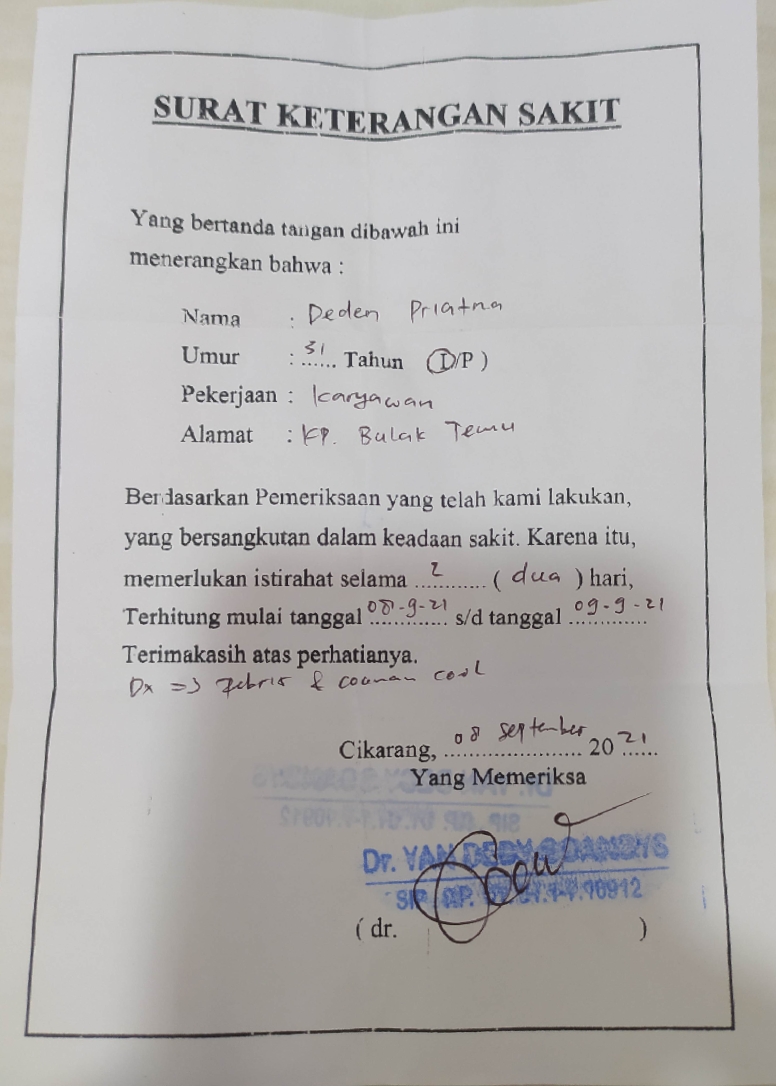 SURAT KETERANGAN SAKIT
Yang bertanda tangan dibawah ini
menerangkan bahwa :
Nama : Deden Priatna
Umur : 31 Tahun (L/P )
Pekerjaan : Karyawan
Alamat : KP. Bulak Temu
Berdasarkan Pemeriksaan yang telah kami lakukan,
yang bersangkutan dalam keadaan sakit. Karena itu,
memerlukan istirahat selama ..2.. ( dua ) hari,
Terhitung mulai tanggal 08-9-21 s/d tanggal 09-9-21
Terimakasih atas perhatianya.
Dx => Febris & comman cool
Cikarang, 08 September 2021
Yang Memeriksa
Dr. YAN
SIP.
( dr. )